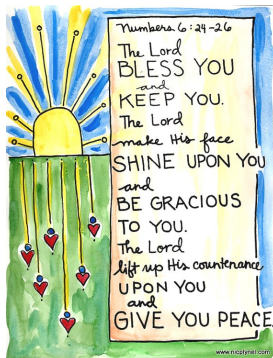 Numbers 6:24-26
The Lord
BLESS YOU
and
KEEP YOU.
The Lord
make His face
SHINE UPON YOU
and
BE GRACIOUS
TO YOU.
The Lord
lift up His countenance
UPON YOU
and
GIVE YOU PEACE